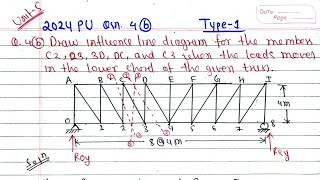 Unit-5
Date
Page
2024 PU Qn. 4(b) Type-1
Q.4(b) Draw influence line diagram for the member
C2, D3, 3D, DC, and C3 when the loads moves
in the lower chord of the given truss.
A B C D E F G H I
4m
0 1 2 3 4 5 6 7 8
8@4m
Roy R8y
Soln